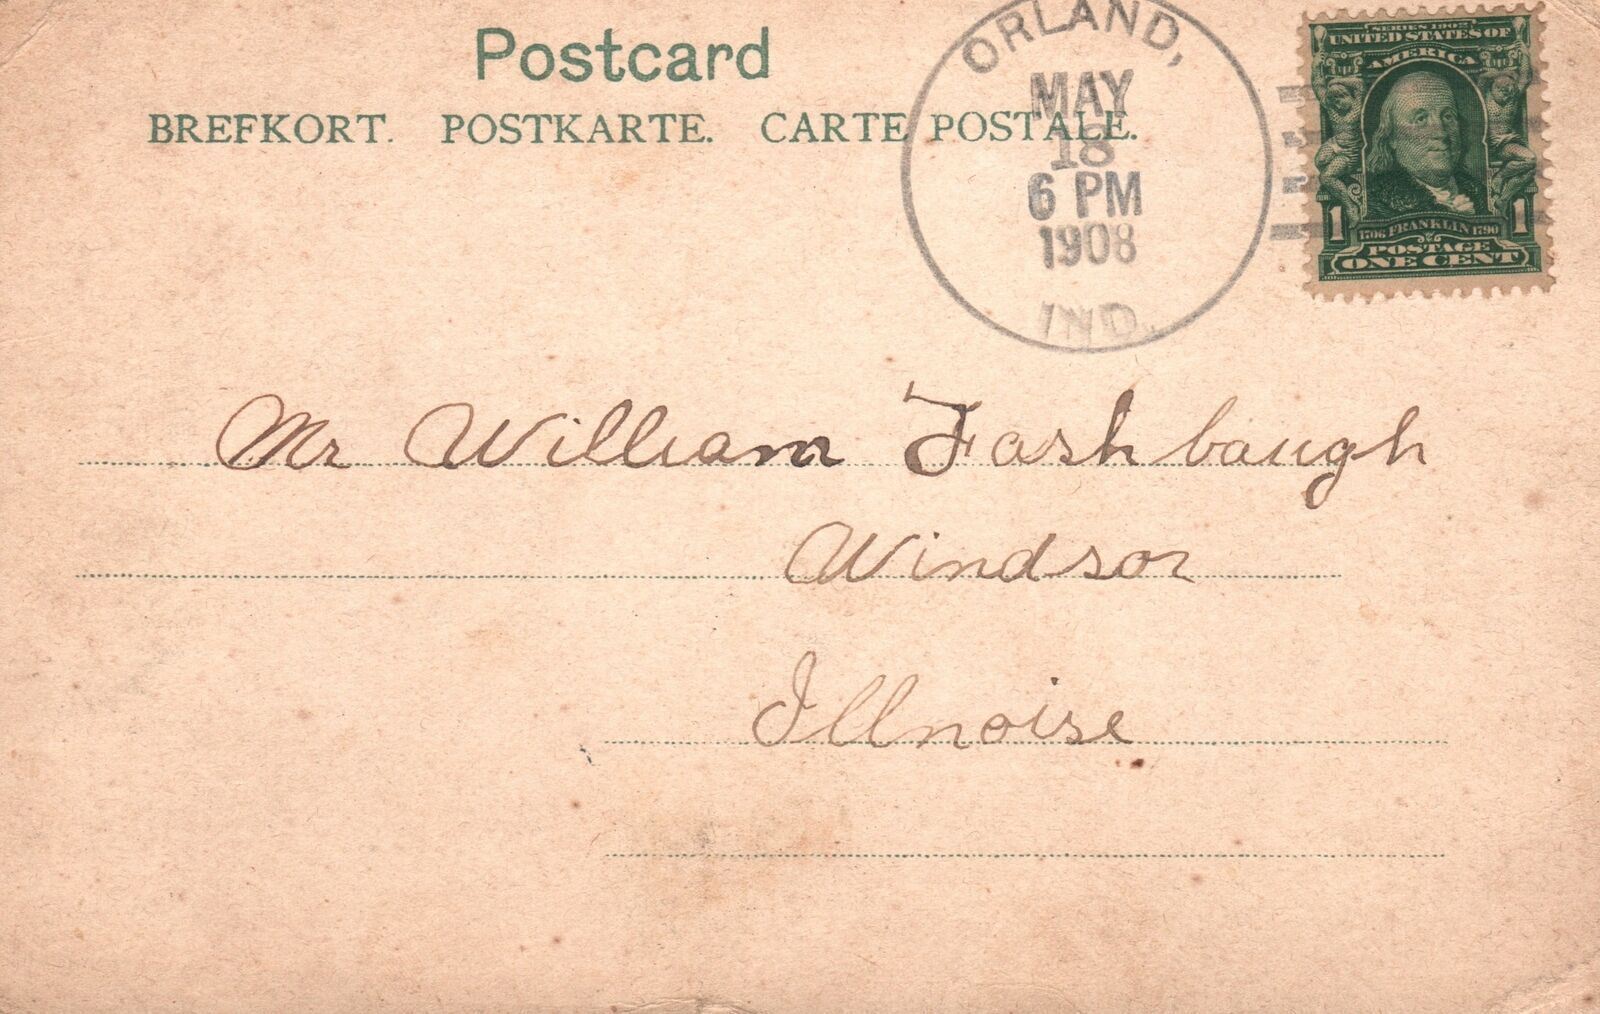 Postcard
BREFKORT. POSTKARTE. CARTE POSTALE.
ORLAND,
MAY
18
6 PM
1908
IND.
SERIES 1902
UNITED STATES OF
AMERICA
1706 FRANKLIN 1790
1 1
POSTAGE
ONE CENT
Mr William Fashbaugh
Windsor
Illnoise